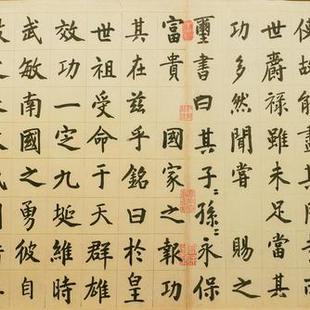 故能盡其
世爵祿雖未足當其
功多然聞嘗 賜之
璽書曰其子〻孫〻永保
富貴 國家之報功
其在茲乎銘曰於皇
世祖受命于天群雄
效功一定九埏維時
武敏南國之勇彼自